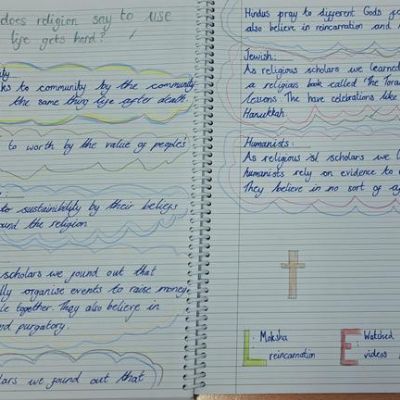 does religion say to use
life gets hard?
ks to community by the community
the same thing life after death.
to worth by the value of peoples
to sustainibility by their beliefs
ound the religion
scholars we found out that
lly organise events to raise money
le together. They also believe in
nd purgatory.
lars we found out that
Hindus pray to different Gods
also believe in reincarnation and
Jewish:
As religious scholars we learned
a religious book called 'The Tora
lessons. The have celebrations like
Hanukkah
Humanists:
As religious sl scholars we
humanists rely on evidence to
They believe in no sort of
L : Moksha
reincarnation
E : Watched
videos